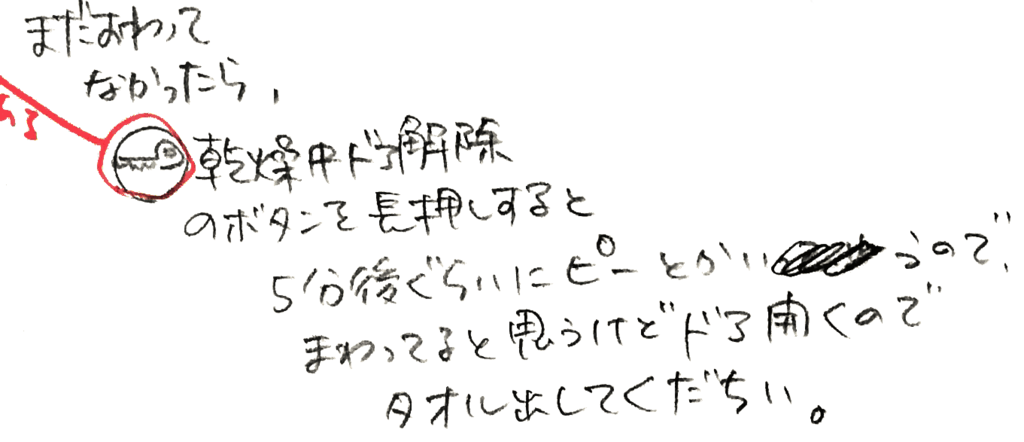 まだおわって
なかったら,
ある
乾燥中ドア解除
のボタンを長押しすると
5分後ぐらいにピーとかいうので、
まわってると思うけどドア開くので
タオル出してください。